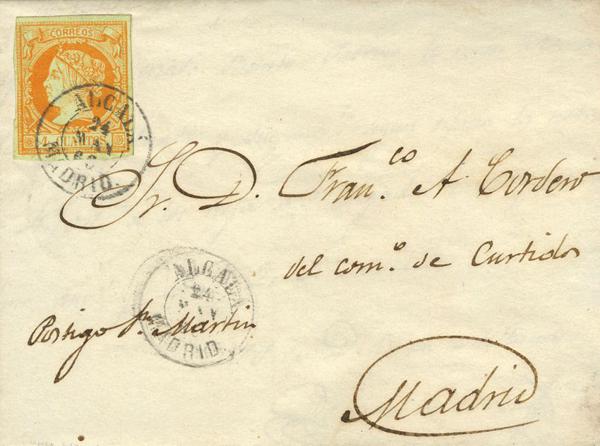 CORREOS
ALCALA
24
MAY
60
MADRID
Sr. D. Fran.co A Cordero
del com.o de Curtidos
ALCALA
24
MAY
MADRID
Postigo Sn Martin
Madrid